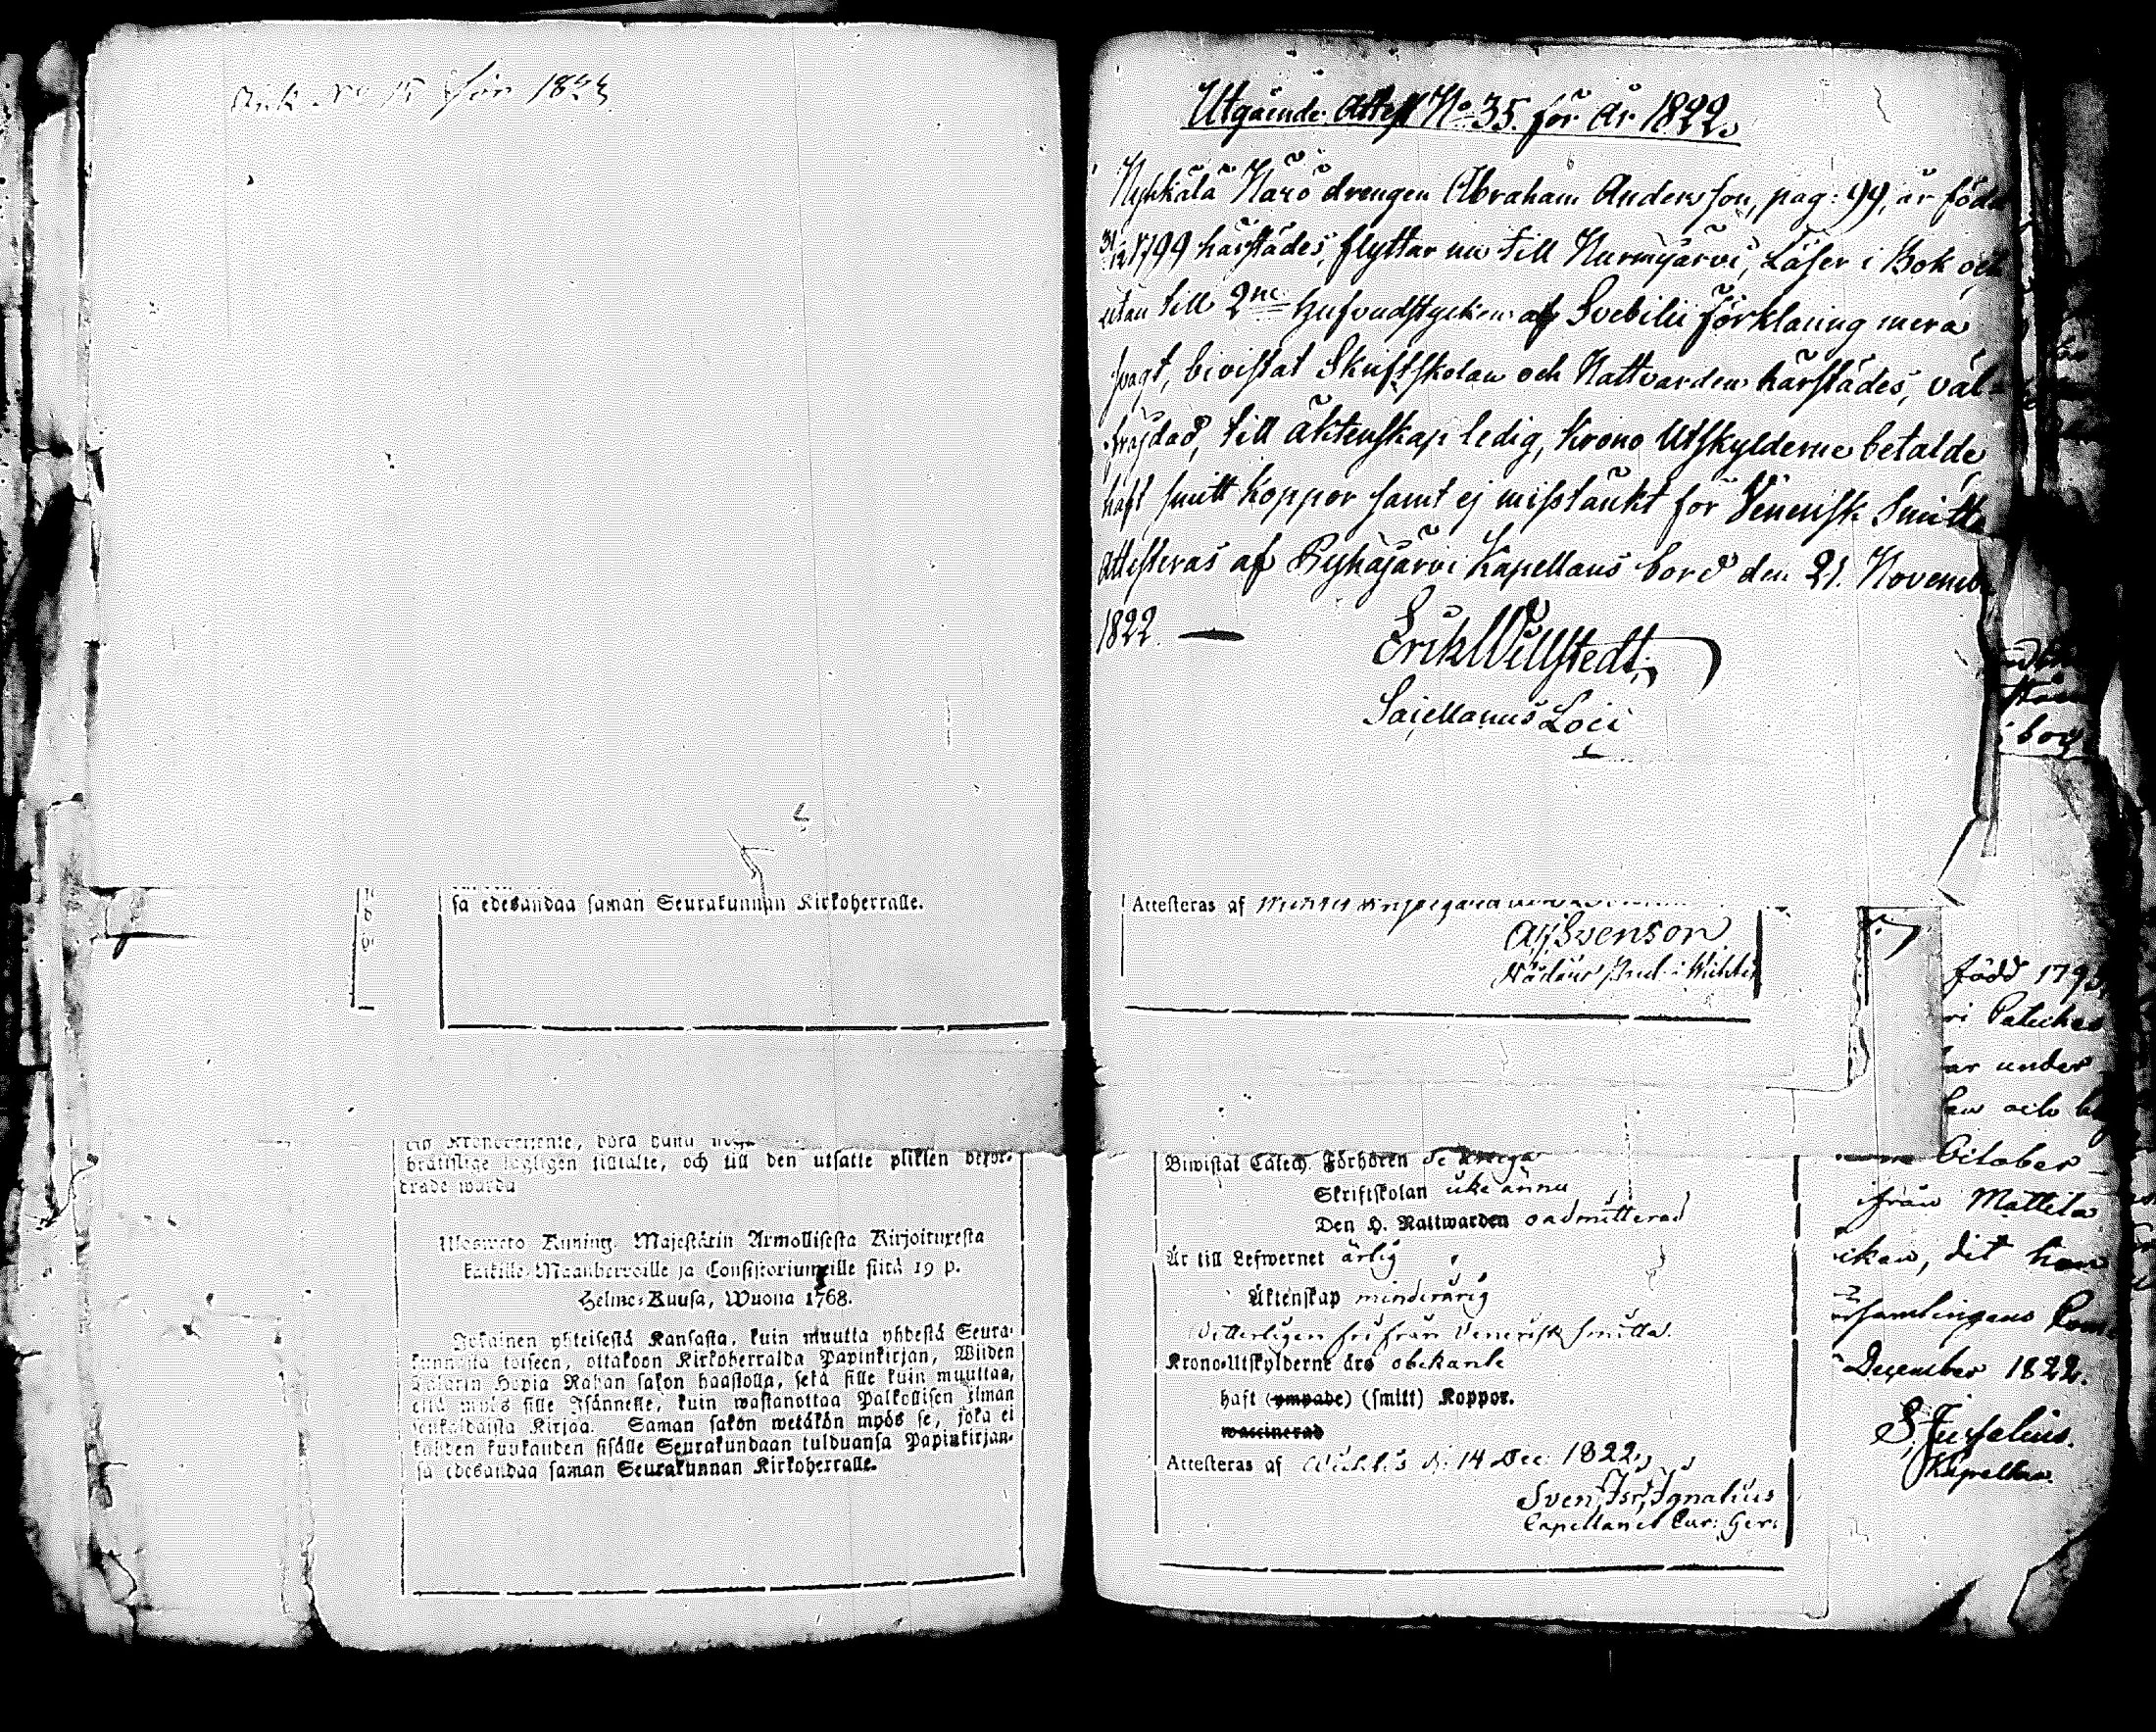 Ank No 15 för 1823
sa edesandaa saman Seurakunnan Kirkoherralle.
bråttslige lagligen tilltalte, och till den utsatte plikten befor-
drade warda
Ulosweto Kuning. Majestätin Armollisesta Kirjoituxesta
kaikille Maanherroille ja Consistoriumeille siitä 19 p.
Helme-Kuusa, Wuona 1768.
Jokainen yhteisestä Kansasta, kuin muutta yhdestä Seura-
kunnasta toiseen, ottakoon Kirkoherralda Papinkirjan, Wiiden
Talarin Hopia Rahan sakon haastolla, sekä sille kuin muuttaa,
että myös sille Isännelle, kuin wastanottaa Palkollisen ilman
senkaldaista Kirjaa. Saman sakon wetäkön myös se, joka ei
kahden kuukauden sisälle Seurakundaan tulduansa Papinkirjan-
sa edesandaa saman Seurakunnan Kirkoherralle.
Utgående Attest No 35. för år 1822.
drengen Abraham Andersson, pag: 99, är född
31/12 1799 härstädes, flyttar nu till Nurmijärvi, Läser i Bok och
utan till 2ne Hufvudstycken af Svebilii Förklaring mera
svagt, bevistat Skriftskolan och Nattvarden härstädes, väl-
frajdad, till äktenskap ledig, Krono Utskylderne betalde,
haft smitt Koppor samt ej misstänkt för Venerisk Smitta
Attesteras af Pyhäjärvi Kapellans bord den 21. Novemb
1822. —
Erik Willstedt,
Sacellanus Loci
Attesteras af
Svenson
Bewistat Catech. Förhören
Skriftskolan icke ännu
Den H. Nattwarden oadmitterad
Är till Lefwernet ärlig
Äktenskap minderårig
Witterligen fri från Venerisk smitta.
Krono-Utskylderne äro obekante
haft (ympade) (smitt) Koppor.
waccinerad
Attesteras af Wichtis d. 14 Dec. 1822.
Sven Isr. Ignatius
Capellanus Cur: Ger:
född 179
under
och
October
ifrån Mattila
dit han
December 1822.
Kapellan.